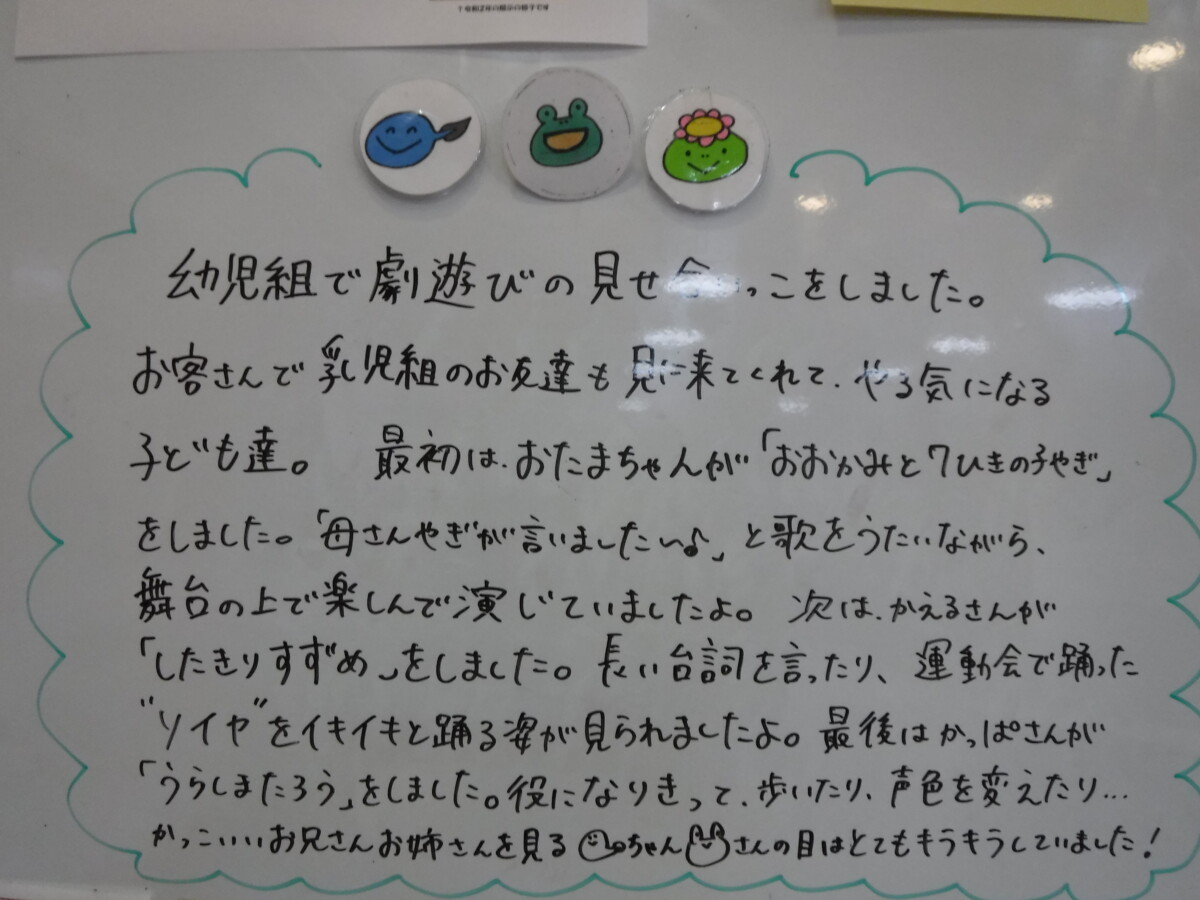 ↑令和2年の展示の様子です
幼児組で劇遊びの見せ合いっこをしました。
お客さんで乳児組のお友達も見に来てくれて、やる気になる
子ども達。 最初は、おたまちゃんが「おおかみと7ひきの子やぎ」
をしました。「母さんやぎが言いましたい〜♪」と歌をうたいながら、
舞台の上で楽しんで演じていましたよ。 次は、かえるさんが
「したきりすずめ」をしました。長い台詞を言ったり、運動会で踊った
"ソイヤ"をイキイキと踊る姿が見られましたよ。最後はかっぱさんが
「うらしまたろう」をしました。役になりきって、歩いたり、声色を変えたり…
かっこいいお兄さんお姉さんを見るちゃんさんの目はとてもキラキラしていました！